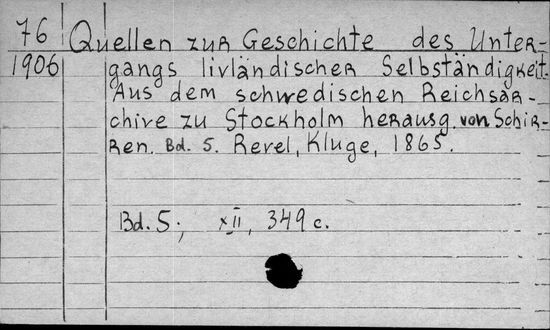 76 Quellen zur Geschichte des Unter-
1906 gangs livländischer Selbständigkeit.
Aus dem schwedischen Reichsar-
chive zu Stockholm herausg. von Schir-
ren. Bd. 5. Revel, Kluge, 1865.
Bd. 5; XII, 349 c.